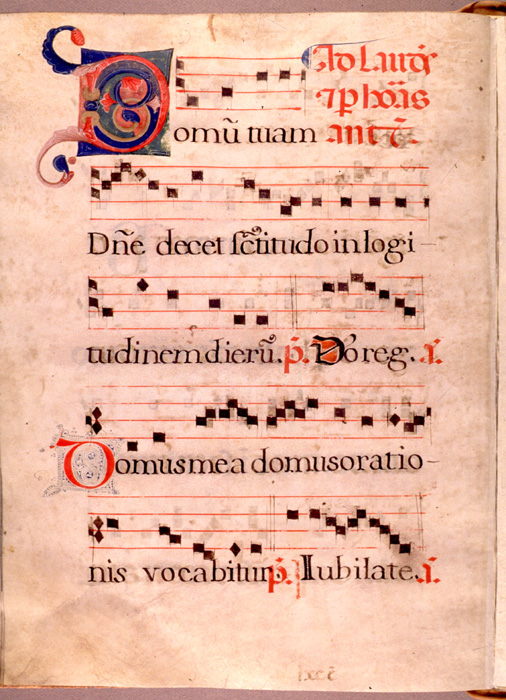 Ad Laud
⁊ p hōas
Domū tuam ant.
Dñe decet sc̄titudo in logi-
tudinem dierū. p̄. Dō reg. a.
Domus mea domus oratio-
nis vocabitur. p̄. Iubilate. a.